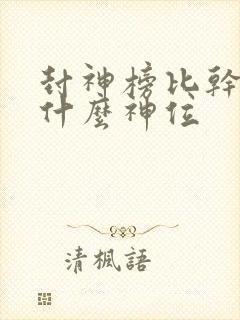 封神榜比幹
什麼神位
清楓語